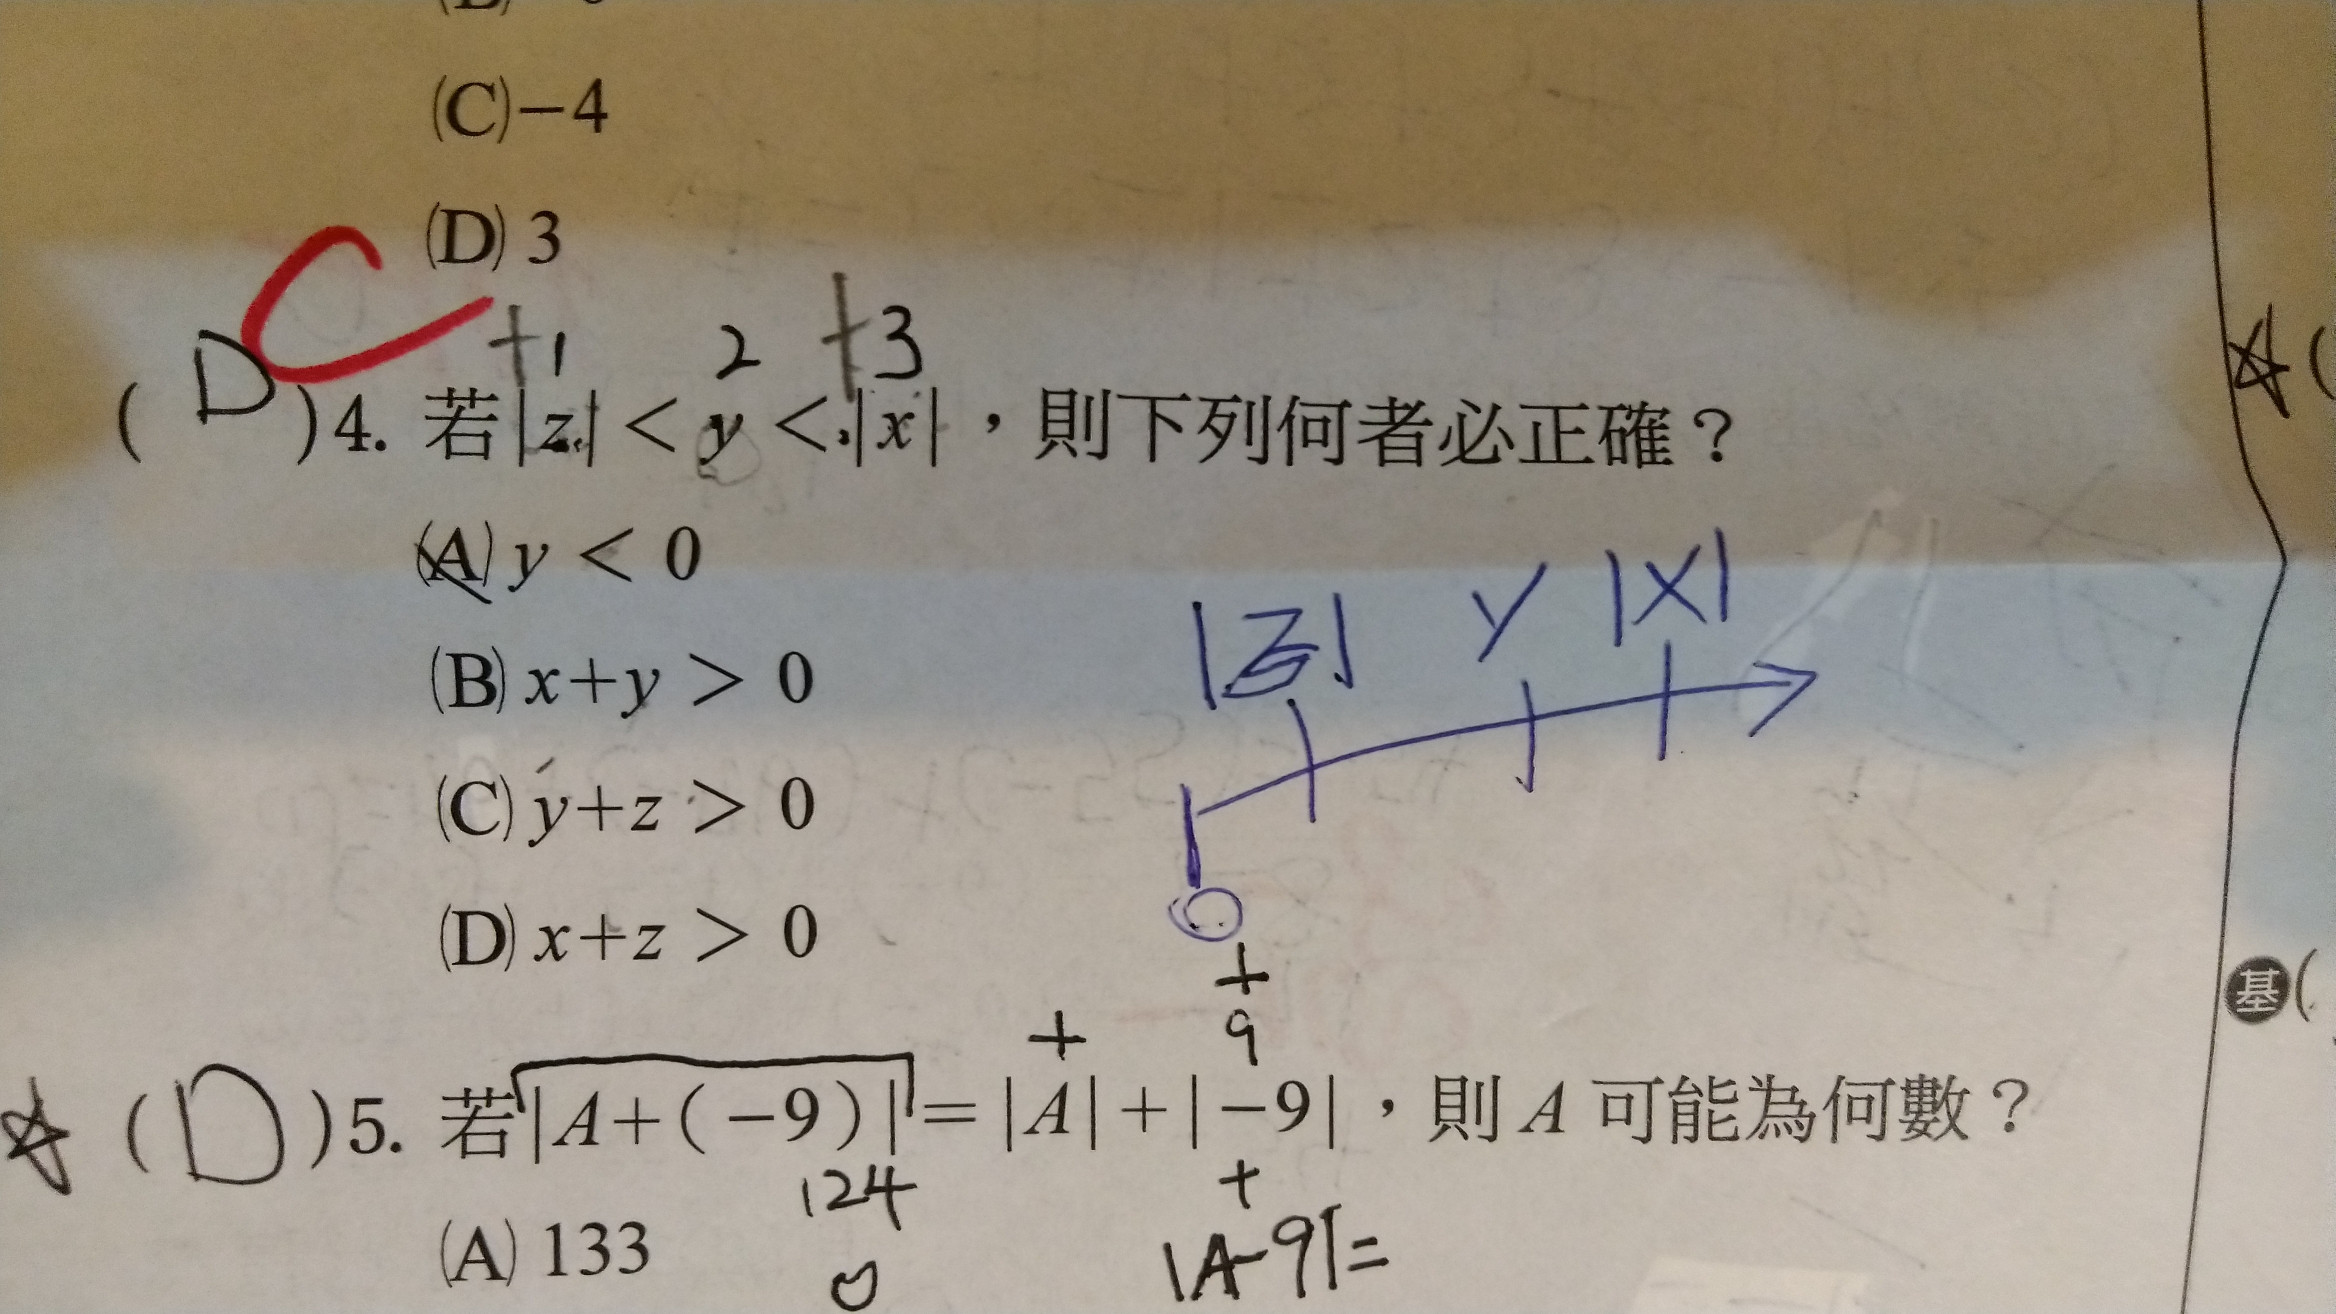 (C)−4
(D) 3
C
+1 2 +3
( D )4. 若|z|<y<|x|,則下列何者必正確?
(A) y < 0
(B) x+y > 0
|z| y |x|
(C) y+z > 0
0
(D) x+z > 0
+ + 9
( D )5. 若|A+(−9)|=|A|+|−9|,則 A 可能為何數?
124 +
(A) 133
0 |A-9|=
基(